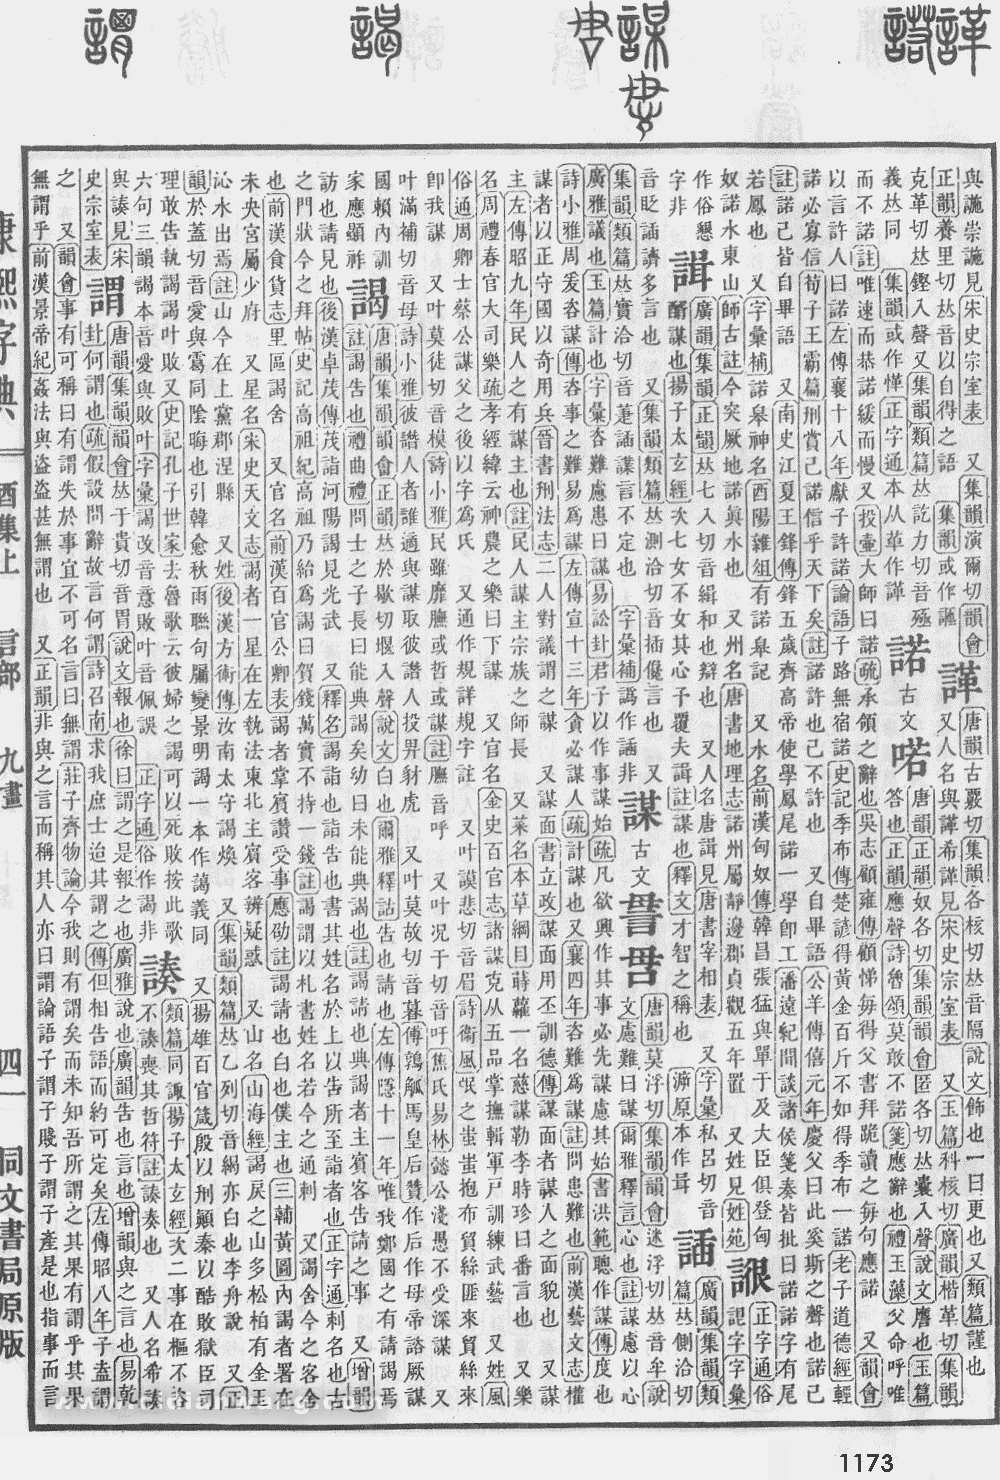 諽
諽
諾
謀
𠰔
謁
謂
與諰崇諰見宋史宗室表　又集韻演爾切韻會
正韻養里切𠀤音以自得之語　集韻或作
諽
唐韻古覈切集韻各核切𠀤音隔說文飾也一曰更也又類篇謹也
又人名與諽希諽見宋史宗室表　又玉篇科核切廣韻楷革切集韻
克革切𠀤鏗入聲又集韻類篇𠀤訖力切音殛
義𠀤同　集韻或作愅正字通本从革作諽
諾
古文
喏
唐韻正韻奴各切集韻韻會匿各切𠀤囊入聲說文譍也玉篇
答也正韻應聲詩魯頌莫敢不諾箋應辭也禮玉藻父命呼唯
而不諾註唯速而恭諾緩而慢又投壷大師曰諾疏承領之辭也吳志顧雍傳顧悌每得父書拜跪讀之每句應諾　又韻會
以言許人曰諾左傳襄十八年獻子許諾論語子路無宿諾史記季布傳楚諺得黃金百斤不如得季布一諾老子道德經輕
諾必寡信荀子王霸篇刑賞已諾信乎天下矣註諾許也已不許也　又自畢語公羊傳僖元年慶父曰此奚斯之聲也諾已
註諾已皆自畢語　又南史江夏王鋒傳鋒五歲齊高帝使學鳳尾諾一學卽工潘遠紀聞談諸侯箋奏皆批曰諾諾字有尾
若鳳也　又字彙補諾皋神名酉陽雜俎有諾皋記　又水名前漢匈奴傳韓昌張猛與單于及大臣俱登匈
奴諾水東山師古註今突厥地諾眞水也　又州名唐書地理志諾州屬靜邊郡貞觀五年置　又姓見姓苑
正字通俗
諰字字彙
作俗懇
字非
諿
廣韻集韻正韻𠀤七入切音緝和也辯也　又人名唐諿見唐書宰相表　又字彙私呂切音
醑謀也揚子太玄經次七女不女其心予覆夫諿註謀也釋文才智之稱也　㴑原本作咠
諨
廣韻集韻類
篇𠀤側洽切
音眨諨譅多言也　又集韻類篇𠀤測洽切音插儳言也　又
集韻類篇𠀤實洽切音萐誦謀言不定也　字彙補譌作諨非
謀
古文
文慮難曰謀爾雅釋言心也註謀慮以心
唐韻莫浮切集韻韻會迷浮切𠀤音牟說
廣雅議也玉篇計也字彙咨難慮患曰謀易訟卦君子以作事謀始疏凡欲興作其事必先謀慮其始書洪範聰作謀傳度也
詩小雅周爰咨謀傳咨事之難易爲謀左傳宣十三年貪必謀人疏計謀也又襄四年咨難爲謀註問患難也前漢藝文志權
謀者以正守國以奇用兵晉書刑法志二人對議謂之謀　又謀面書立政謀面用丕訓德傳謀面者謀人之面貌也　又謀
主左傳昭九年民人之有謀主也註民人謀主宗族之師長　又菜名本草綱目蒔蘿一名慈謀勒李時珍曰番言也　又樂
名周禮春官大司樂疏孝經緯云神農之樂曰下謀　又官名金史百官志諸謀克从五品掌撫輯軍戸訓練武藝　又姓風
俗通周卿士蔡公謀父之後以字爲氏　又通作規詳規字註　又叶謨悲切音眉詩衞風氓之蚩蚩抱布貿絲匪來貿絲來
卽我謀　又叶莫徒切音模詩小雅民雖靡膴或哲或謀註膴音呼　又叶况于切音吁焦氏易林懿公淺愚不受深謀　又
叶滿補切音母詩小雅彼譖人者誰適與謀取彼譖人投畀豺虎　又叶莫故切音暮傅鶉觚馬皇后贊作后作母帝諮厥謀
國賴內訓
家應顯祚
謁
唐韻集韻韻會正韻𠀤於歇切堰入聲說文白也爾雅釋詁告也請也左傳隱十一年唯我鄭國之有請謁焉
註謁告也禮曲禮問士之子長曰能典謁矣幼曰未能典謁也註謁請也典謁者主賓客告請之事　又增韻
訪也請見也後漢卓茂傳茂詣河陽謁見光武　又釋名謁詣也詣告也書其姓名於上以告所至詣者也正字通刺名也古
之門狀今之拜帖史記高祖紀高祖乃紿爲謁曰賀錢萬實不持一錢註謁謂以札書姓名若今之通刺　又謁舍今之客舍
也前漢食貨志里區謁舍　又官名前漢百官公卿表謁者掌賓讚受事應劭註謁請也白也僕主也三輔黃圖內謁者署在
未央宮屬少府　又星名宋史天文志謁者一星在左執法東北主賓客辨疑惑　又山名山海經謁戾之山多松柏有金玉
沁水出焉註山今在上黨郡涅縣　又姓後漢方術傳汝南太守謁煥　又集韻類篇𠀤乙列切音䋵亦白也李舟說　又正
韻於葢切音愛與靄同陰晦也引韓愈秋雨聯句屬變景明謁一本作藹義同　又揚雄百官箴殷以刑顚秦以酷敗獄臣司
理敢告執謁謁叶敗又史記孔子世家去魯歌云彼婦之謁可以死敗按此歌
六句三韻謁本音愛與敗叶字彙謁改音意敗叶音佩誤　正字通俗作谒非
諘
類篇同諏揚子太玄經次二事在樞不咨
不諘喪其哲符註諘奏也　又人名希諘
與諘見宋
史宗室表
謂
唐韻集韻韻會𠀤于貴切音胃說文報也徐曰謂之是報之也廣雅說也廣韻告也言也增韻與之言也易乾
卦何謂也疏假設問辭故言何謂詩召南求我庶士迨其謂之傳但相告語而約可定矣左傳昭八年子盍謂
之　又韻會事有可稱曰有謂失於事宜不可名言曰無謂莊子齊物論今我則有謂矣而未知吾所謂之其果有謂乎其果
無謂乎前漢景帝紀姦法與盜盜甚無謂也　又正韻非與之言而稱其人亦曰謂論語子謂子賤子謂子產是也指事而言
康熙字典
酉集上　言部　九畫
四一
同文書局原版
1173